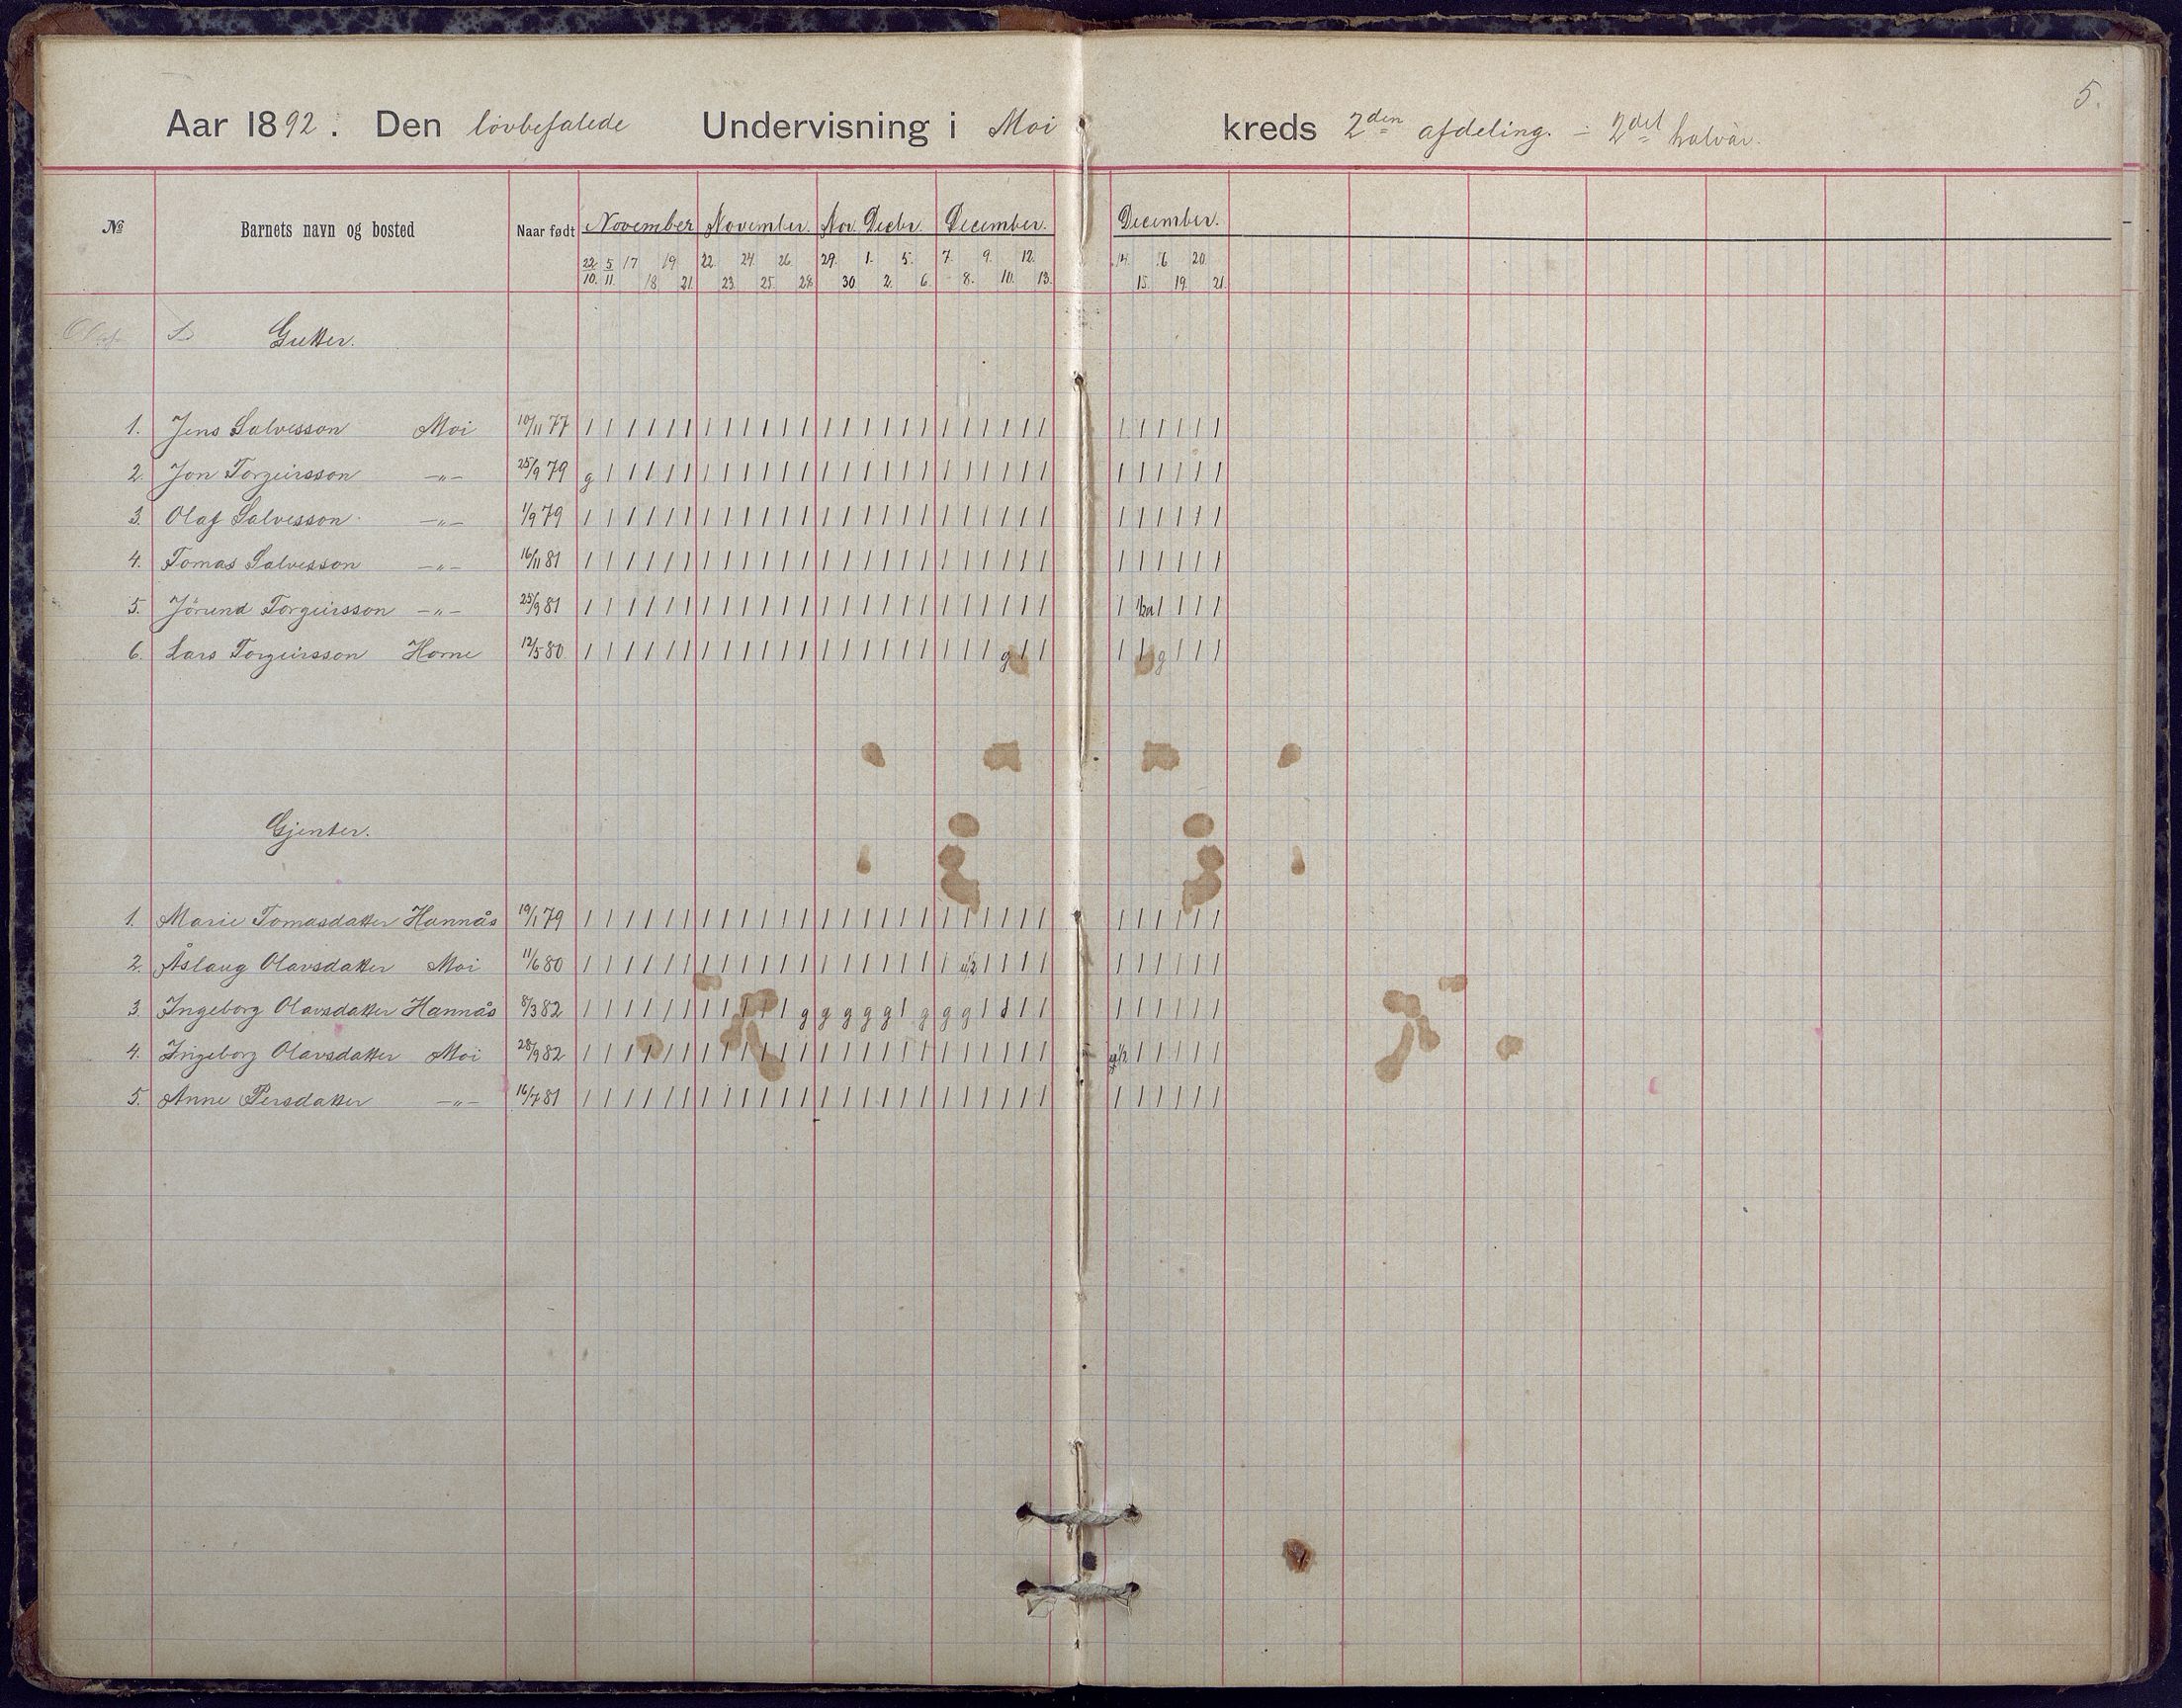 5.
Aar 1892. Den lovbefalede Undervisning i Moi kreds 2den afdeling. - 2det halvår.
№ Barnets navn og bosted Naar født November November. Nov. Decbr. December. December.
22/10. 5/11. 17 19 22. 24. 26. 29. 1. 5. 7. 9. 12. 14. 16 20.
18 21. 23. 25. 28. 30. 2. 6. 8. 10. 13. 15. 19. 21.
Gutter.
1. Jens Salvesson Moi 10/11 77 | | | | | | | | | | | | | | | | | | | | | | | | | | | | | |
2. Jon Torgeirsson -"- 25/9 79 g | | | | | | | | | | | | | | | | | | | | | | | | | | | | |
3. Olaf Salvesson -"- 1/9 79 | | | | | | | | | | | | | | | | | | | | | | | | | | | | | |
4. Tomas Salvesson -"- 16/11 81 | | | | | | | | | | | | | | | | | | | | | | | | | | | | | |
5. Jörund Torgeirsson -"- 25/9 81 | | | | | | | | | | | | | | | | | | | | | | | | | | | | |
6. Lars Torgeirsson Horne 12/5 80 | | | | | | | | | | | | | | | | | | | | | g | | | | g | | |
Gjenter.
1. Marie Tomasdatter Hannås 19/1 79 | | | | | | | | | | | | | | | | | | | | | | | | | | | | | |
2. Åslaug Olavsdatter Moi 11/6 80 | | | | | | | | | | | | | | | | | | | | | | | | | | | | |
3. Ingeborg Olavsdatter Hannås 8/3 82 | | | | | | | | | | | g g g g g | g g g | | | | | | | | | |
4. Ingeborg Olavsdatter Moi 28/9 82 | | | | | | | | | | | | | | | | | | | | | | | | g1/2 | | | | |
5. Anne Persdatter -"- 16/7 81 | | | | | | | | | | | | | | | | | | | | | | | | | | | | | |